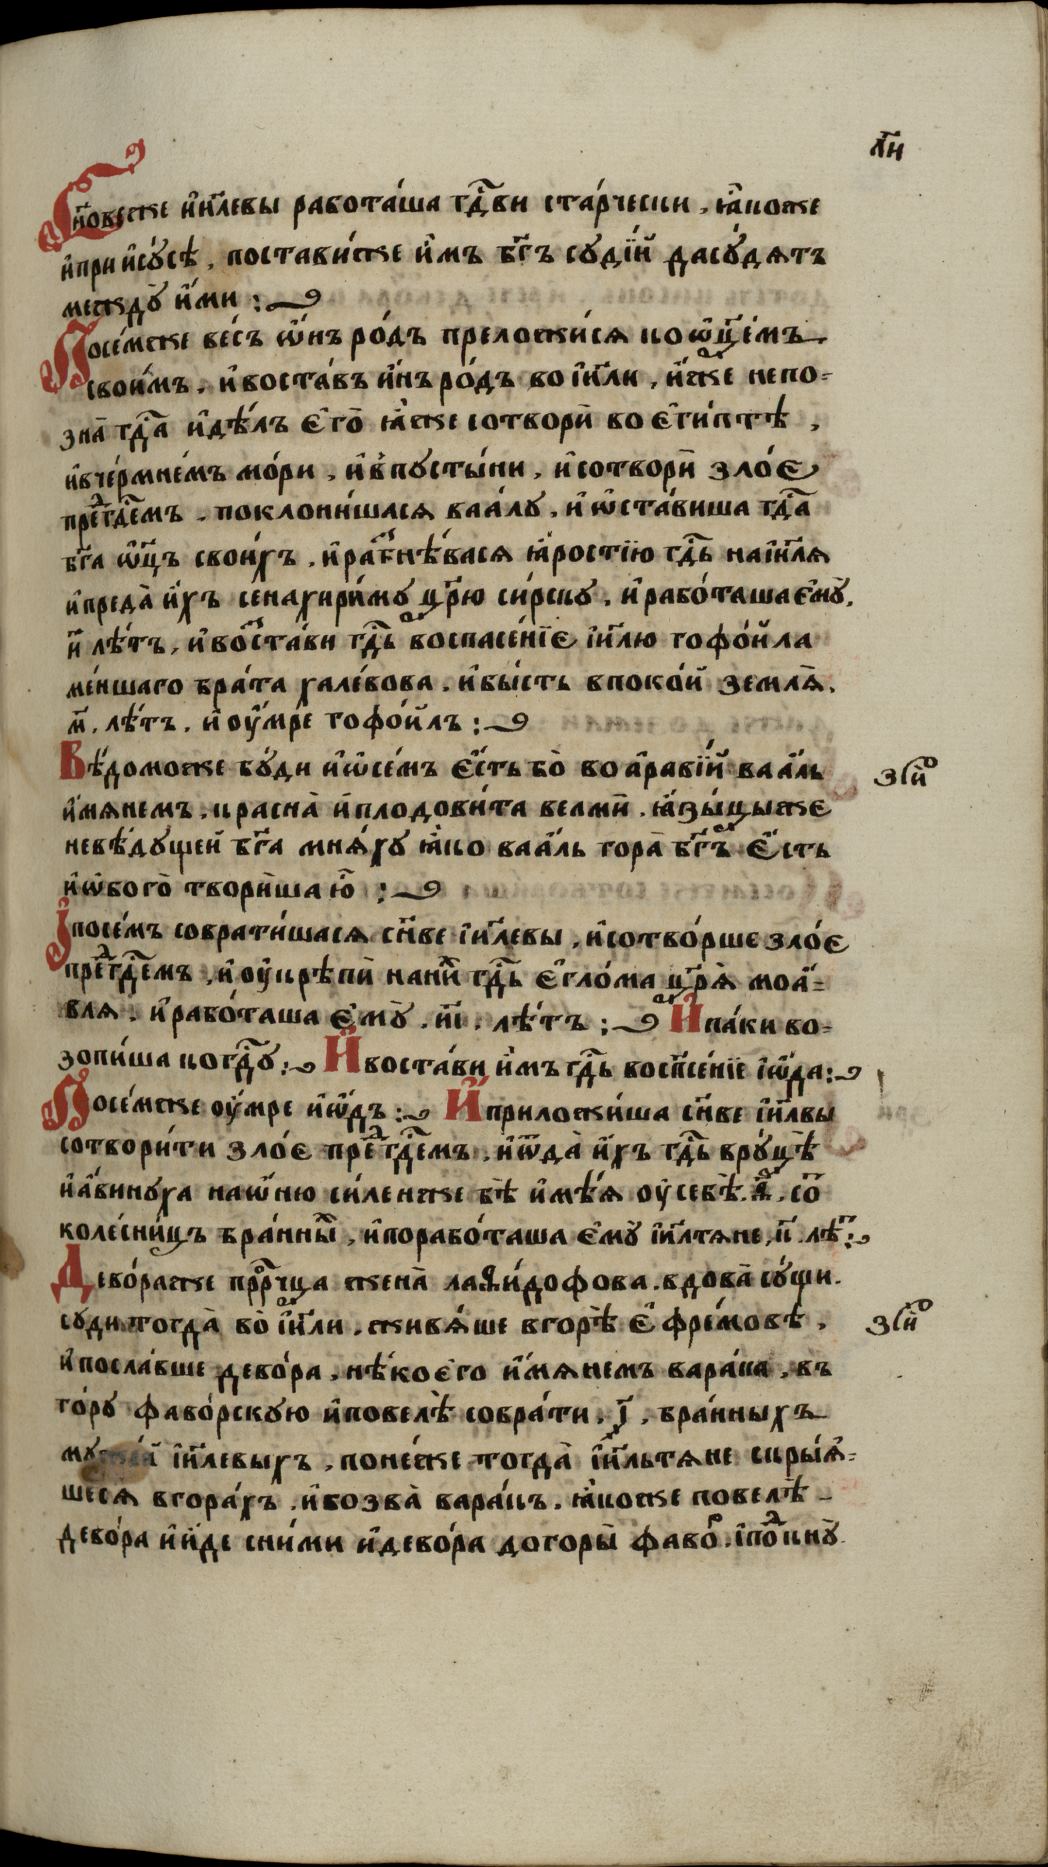 л҃и
Сн҃овеже і҆и҃левы работа́ша гд҇ви ста́рчески, ꙗ҆коже
и҆при и҆су́сѣ, постави́же и҆мъ бг҃ъ судїи̑ дасу́дятъ
междꙋ̀ и҆́ми :
Посе́мже ве́съ ѡ҆нъ ро́дъ преложи́ся ко ѻ҆ц҃е́мъ
свои́мъ, и҆воста́въ и҆́нъ ро́дъ во і҆и҃ли, и҆́же непо-
зна̀ гд҇а и҆дѣ́лъ є҆го̀ ꙗ҆́же сотворѝ во є҆ги́птѣ,
и҆вче́рмнемъ мо́ри, и҆впусты́ни, и҆сотворѝ зло́є
преⷣгд҇емъ, поклони́шася ваа́лу, и҆ ѡ҆ста́виша гд҇а
бг҃а ѻ҆ц҃ъ свои́хъ, и҆разⸯгнѣ́вася ꙗ҆́ростїю гд҇ь наі҆и҃ля
и҆преда̀ и҆́хъ сенахири́му цр҃ю си́рску, и҆рабо́таша є҆мꙋ̀,
и҃ лѣ́тъ, и҆воⷥста́ви гд҇ь воспасе́нїе і҆и҃лю гофо́ила
ме́ншаго бра́та хале́вова, и҆бы́сть впоко́и земля̀,
м҃, лѣ́тъ, и҆ оу҆́мре гофо́илъ :
Вѣ́доможе бу́ди и҆ ѡ҆се́мъ є҆́сть бо̀ во а҆равїи̑ ваа́ль
и҆́мянемъ, красна̀ и҆плодови́та велмѝ, ꙗ҆зы́цыже
невѣ́дущеи бг҃а мня́ху ꙗ҆́ко ваа́ль гора̀ бг҃ъ є҆́сть
и҆ ѡ҆бого̀ твори́ша ю҆̀ :
І҆посе́мъ соврати́шася сн҃ве і҆и҃левы, и҆сотво́рше зло́є
преⷣгд҇емъ, и҆ оу҆крѣпѝ нани́ гд҇ь є҆гло́ма цр҃я̀ моа́-
вля, и҆рабо́таша є҆мꙋ̀, и҃і, лѣ́тъ : И҆па́ки во-
зопи́ша когд҇у : И҆воста́ви и҆мъ гд҇ь воспⷭ҇се́нїе і҆ѡ́да :
Посе́мже оу҆́мре и҆ѡ́дъ : И҆приложи́ша сн҃ве і҆и҃лвы
сотвори́ти зло́є преⷣгд҇емъ, и҆ ѿда̀ и҆́хъ гд҇ь вру́цѣ
и҆а́винуха наѡ҆́ню си́ленже бѣ̀ и҆мѣ́я оу҆себѐ, со
колесни́цъ бра́нны, и҆порабо́таша є҆мꙋ̀ і҆и҃лтяне, к҃ лѣ :
Дево́раже прⷪ҇рчца жена̀ лаѳи́дофова, вдова̀ су́щи,
суди тогда̀ во̀ і҆и҃ли, живя́ше вгорѣ̀ є҆фре́мовѣ,
и҆посла́вше дево́ра, нѣ́коєго и҆́мянемъ вара́ка, въ
го́ру фаво́рскую и҆повелѣ̀ собра́ти, і҃, бра́нныхъ
муже́й і҆и҃левыхъ, поне́же тогда̀ і҆и҃льтяне скры́я-
шеся вгора́хъ, и҆возва̀ вара́къ, ꙗ҆́коже повелѣ̀
дево́ра и҆ и҆́де сни́ми и҆дево́ра догоры̀ фавоⷬ,